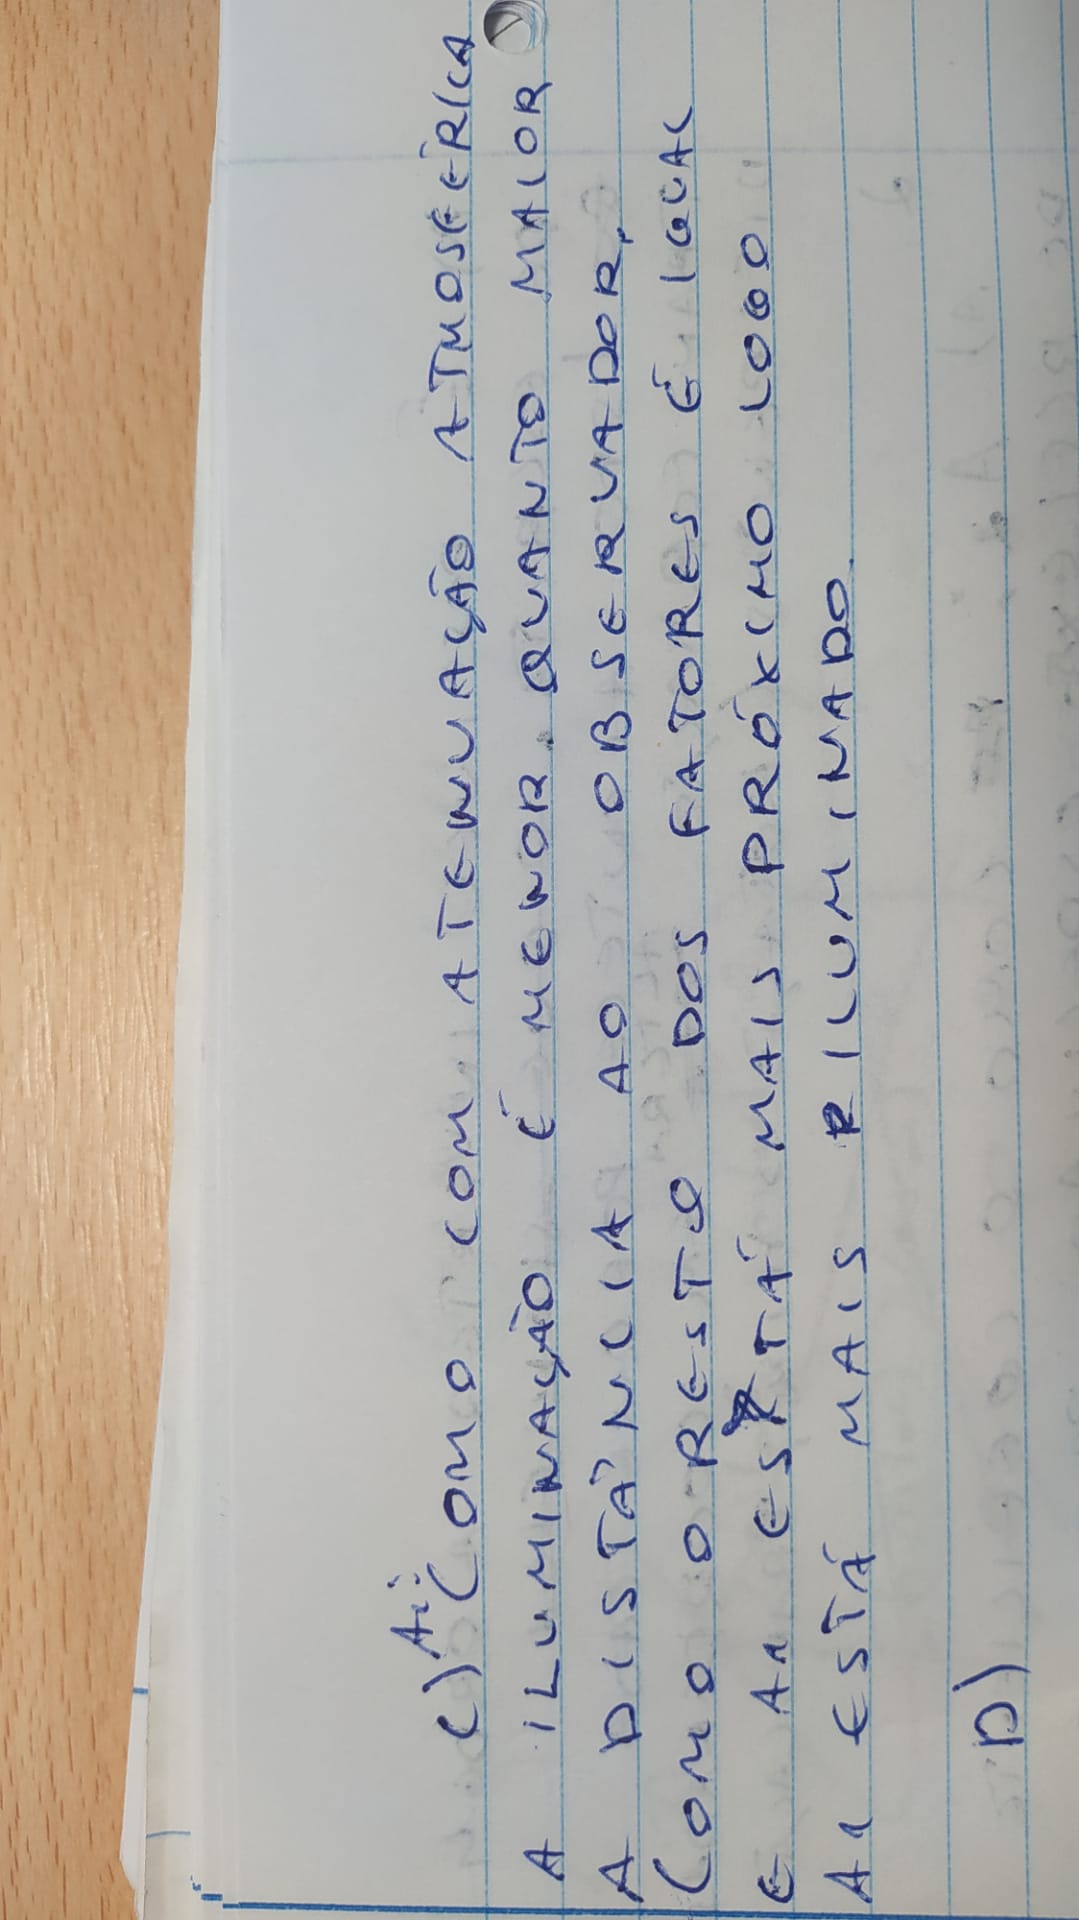 C) A1: COMO COM ATENUAÇÃO ATMOSFÉRICA
A ILUMINAÇÃO É MENOR. QUANTO MAIOR
A DISTÂNCIA AO OBSERVADOR,
COMO O RESTO DOS FATORES É IGUAL
E A1 ESTÁ MAIS PRÓXIMO LOGO
A1 ESTÁ MAIS ILUMINADO.
D)